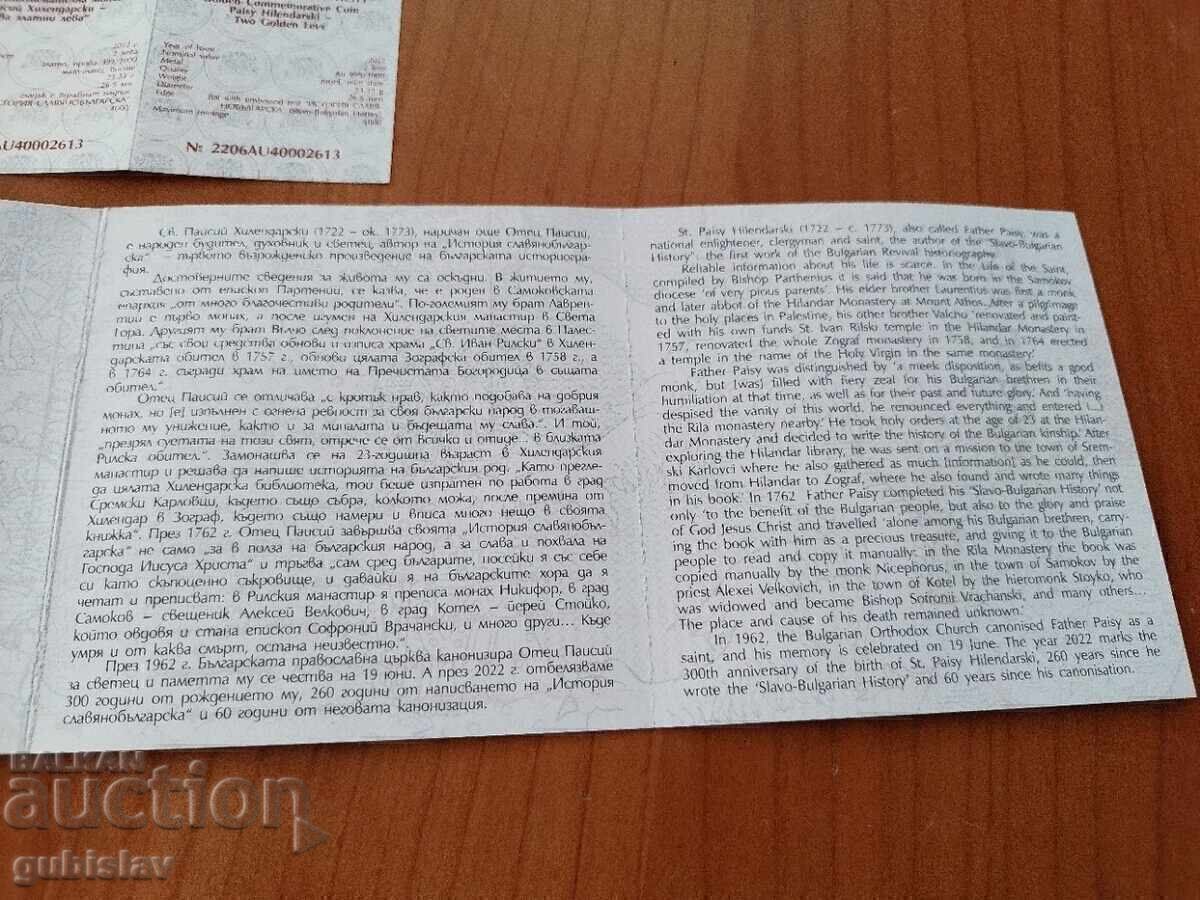 Paisy Hilendarski –
Two Golden Levs
Year of Issue
Nominal value
Metal
Quality
Weight
Diameter
Edge
AU40002613
№ 2206AU40002613
Св. Паисий Хилендарски (1722 – ок. 1773), наричан още Отец Паисий,
е народен будител, духовник и светец, автор на „История славянобългар-
ска“ – първото възрожденско произведение на българската историогра-
фия.
Достоверните сведения за живота му са оскъдни. В житието му,
съставено от епископ Партений, се казва, че е роден в Самоковската
епархия „от много благочестиви родители“. По-големият му брат Лаврен-
тий е първо монах, а после игумен на Хилендарския манастир в Света
Гора. Другият му брат Вълчо след поклонение на светите места в Палес-
тина „със свои средства обнови и изписа храма „Св. Иван Рилски“ в Хилен-
дарската обител в 1757 г., обнови цялата Зографска обител в 1758 г., а
в 1764 г. съгради храм на името на Пречистата Богородица в същата
обител.“
Отец Паисий се отличава „с кротък нрав, както подобава на добрия
монах, но [е] изпълнен с огнена ревност за своя български народ в тогаваш-
ното му унижение, както и за миналата и бъдещата му слава.“. И той,
„презрял суетата на този свят, отрече се от всичко и отиде... в близката
Рилска обител“. Замонашва се на 23-годишна възраст в Хилендарския
манастир и решава да напише историята на българския род. „Като прегле-
да цялата Хилендарска библиотека, той беше изпратен по работа в град
Сремски Карловци, където също събра, колкото можа, после премина от
Хилендар в Зограф, където също намери и вписа много нещо в своята
книжка“. През 1762 г. Отец Паисий завършва своята „История славянобъл-
гарска“ не само „за в полза на българския народ, а за слава и похвала на
Господа Иисуса Христа“ и тръгва „сам сред българите, носейки я със себе
си като скъпоценно съкровище, и давайки я на българските хора да я
четат и преписват: в Рилския манастир я преписа монах Никифор, в град
Самоков – свещеник Алексей Велкович, в град Котел – йерей Стойко,
който овдовя и стана епископ Софроний Врачански, и много други... Къде
умря и от каква смърт, остана неизвестно.“.
През 1962 г. Българската православна църква канонизира Отец Паисий
за светец и паметта му се чества на 19 юни. А през 2022 г. отбелязваме
300 години от рождението му, 260 години от написването на „История
славянобългарска“ и 60 години от неговата канонизация.
St. Paisy Hilendarski (1722 – c. 1773), also called Father Paisy, was a
national enlightener, clergyman and saint, the author of the 'Slavo-Bulgarian
History': the first work of the Bulgarian Revival historiography.
Reliable information about his life is scarce. In the Life of the Saint,
compiled by Bishop Parthenius, it is said that he was born in the Samokov
diocese 'of very pious parents'. His elder brother Laurentius was first a monk,
and later abbot of the Hilandar Monastery at Mount Athos. After a pilgrimage
to the holy places in Palestine, his other brother Valcho 'renovated and paint-
ed with his own funds St. Ivan Rilski temple in the Hilandar Monastery in
1757, renovated the whole Zograf monastery in 1758, and in 1764 erected
a temple in the name of the Holy Virgin in the same monastery.'
Father Paisy was distinguished by 'a meek disposition, as befits a good
monk, but [was] filled with fiery zeal for his Bulgarian brethren in their
humiliation at that time, as well as for their past and future glory. And 'having
despised the vanity of this world, he renounced everything and entered (...)
the Rila monastery nearby.' He took holy orders at the age of 23 at the Hilan-
dar Monastery and decided to write the history of the Bulgarian kinship.' After
exploring the Hilandar library, he was sent on a mission to the town of Srem-
ski Karlovci where he also gathered as much [information] as he could, then
moved from Hilandar to Zograf, where he also found and wrote many things
in his book.' In 1762 Father Paisy completed his 'Slavo-Bulgarian History' not
only 'to the benefit of the Bulgarian people, but also to the glory and praise
of God Jesus Christ and travelled 'alone among his Bulgarian brethren, carry-
ing the book with him as a precious treasure, and giving it to the Bulgarian
people to read and copy it manually: in the Rila Monastery the book was
copied manually by the monk Nicephorus, in the town of Samokov by the
priest Alexei Velkovich, in the town of Kotel by the hieromonk Stoyko, who
was widowed and became Bishop Sofronii Vrachanski, and many others...
The place and cause of his death remained unknown.'
In 1962, the Bulgarian Orthodox Church canonised Father Paisy as a
saint, and his memory is celebrated on 19 June. The year 2022 marks the
300th anniversary of the birth of St. Paisy Hilendarski, 260 years since he
wrote the 'Slavo-Bulgarian History' and 60 years since his canonisation.
BALKAN
auction
gubislav